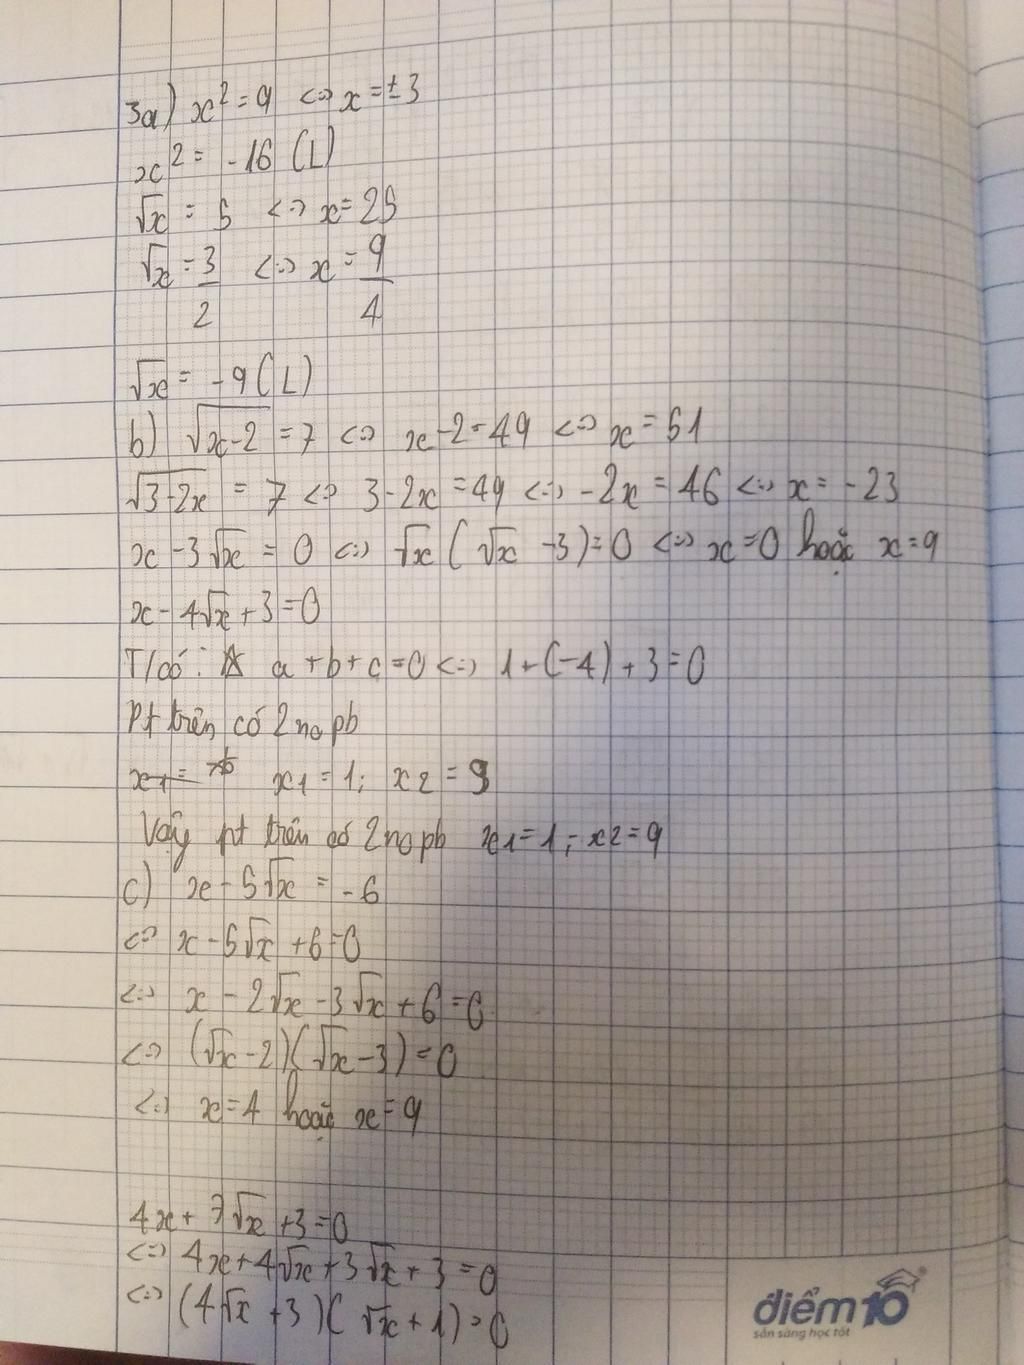 3a) x² = 9 <=> x = ±3
x² = -16 (L)
√x = 5 <=> x = 25
√x = 3/2 <=> x = 9/4
√x = -9 (L)
b) √(x-2) = 7 <=> x-2=49 <=> x = 51
√(3-2x) = 7 <=> 3-2x = 49 <=> -2x = 46 <=> x = -23
x - 3√x = 0 <=> √x (√x - 3) = 0 <=> x = 0 hoặc x = 9
x - 4√x + 3 = 0
T/có: a + b + c = 0 <=> 1 + (-4) + 3 = 0
Pt trên có 2 no pb
x1 = x1 = 1; x2 = 9
Vậy pt trên có 2 no pb x1 = 1; x2 = 9
c) x - 5√x = -6
<=> x - 5√x + 6 = 0
<=> x - 2√x - 3√x + 6 = 0
<=> (√x - 2)(√x - 3) = 0
<=> x = 4 hoặc x = 9
4x + 7√x + 3 = 0
<=> 4x + 4√x + 3√x + 3 = 0
<=> (4√x + 3)(√x + 1) = 0
điểm10
sẵn sàng học tốt